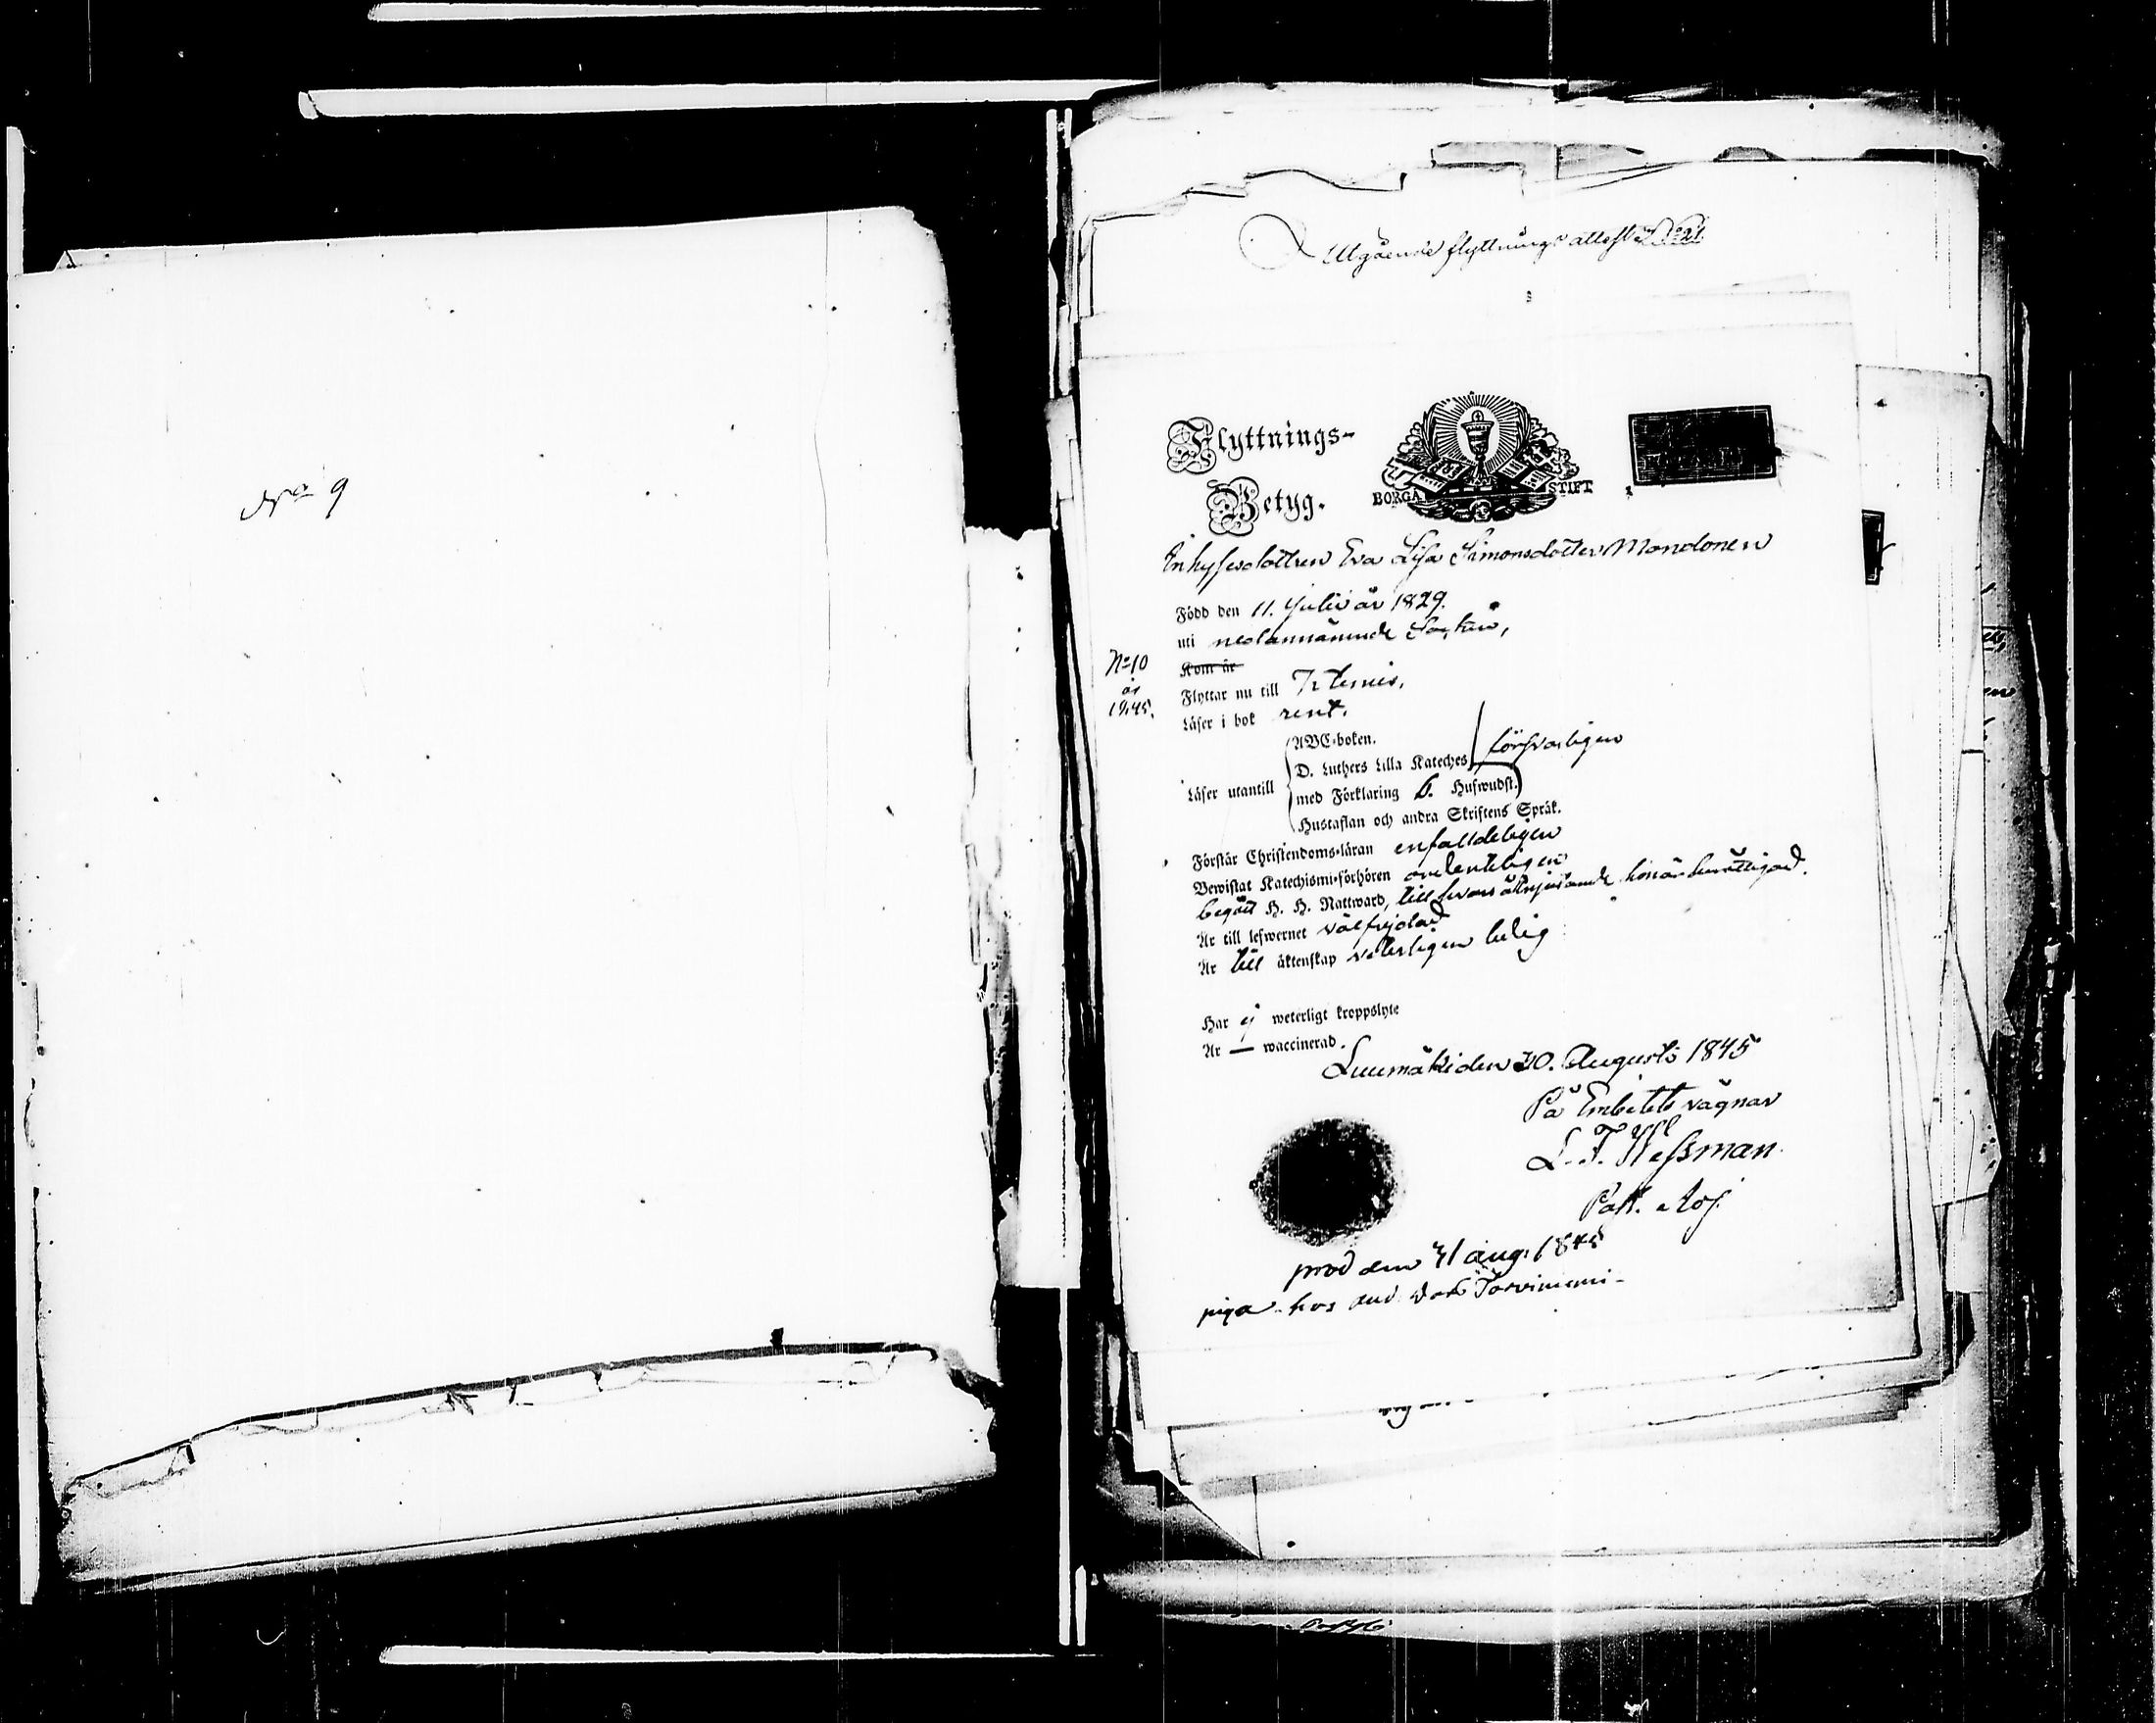 No 9
Utgående flyttnings attest No 21
Flyttnings-
Betyg.
BORGÅ STIFT
Inhysesdottren Eva Lisa Simonsdotter Mondonen
Född den 11. Julii år 1829.
uti nedannämnde Socken,
No 10
år
1845.
Kom år
Flyttar nu till
Läser i bok rent.
ABC-boken.
D. Luthers Lilla Kateches
försvarligen
Läser utantill
med Förklaring 6. Hufwudst.
Hustaflan och andra Skriftens Språk.
Förstår Christendoms-läran enfalldeligen
Bewistat Katechismi-förhören ordenteligen
begått H. H. Nattward, till hvars åtnjutande hon är berättigad.
Är till lefwernet välfrejdad
Är till äktenskap veterligen ledig
Har ej weterligt kroppslyte
Är — waccinerad.
Luumäki den 30. Augusti 1845
På Embetets vägnar
L. F. Wessman.
prod den 31 aug. 1845
piga hos